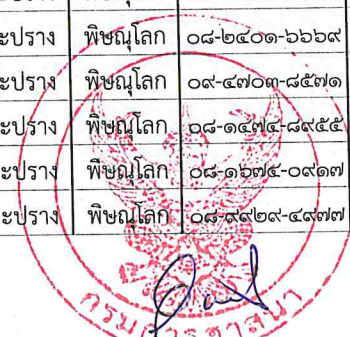 ะปราง พิษณุโลก ๐๘-๒๔๐๑-๖๖๖๙
ะปราง พิษณุโลก ๐๙-๔๗๐๓-๘๕๗๑
ะปราง พิษณุโลก ๐๘-๑๔๗๔-๘๙๕๕
ะปราง พิษณุโลก ๐๘-๑๖๗๔-๐๙๑๗
ะปราง พิษณุโลก ๐๘-๙๙๒๙-๔๙๗๗
กรมการศาสนา